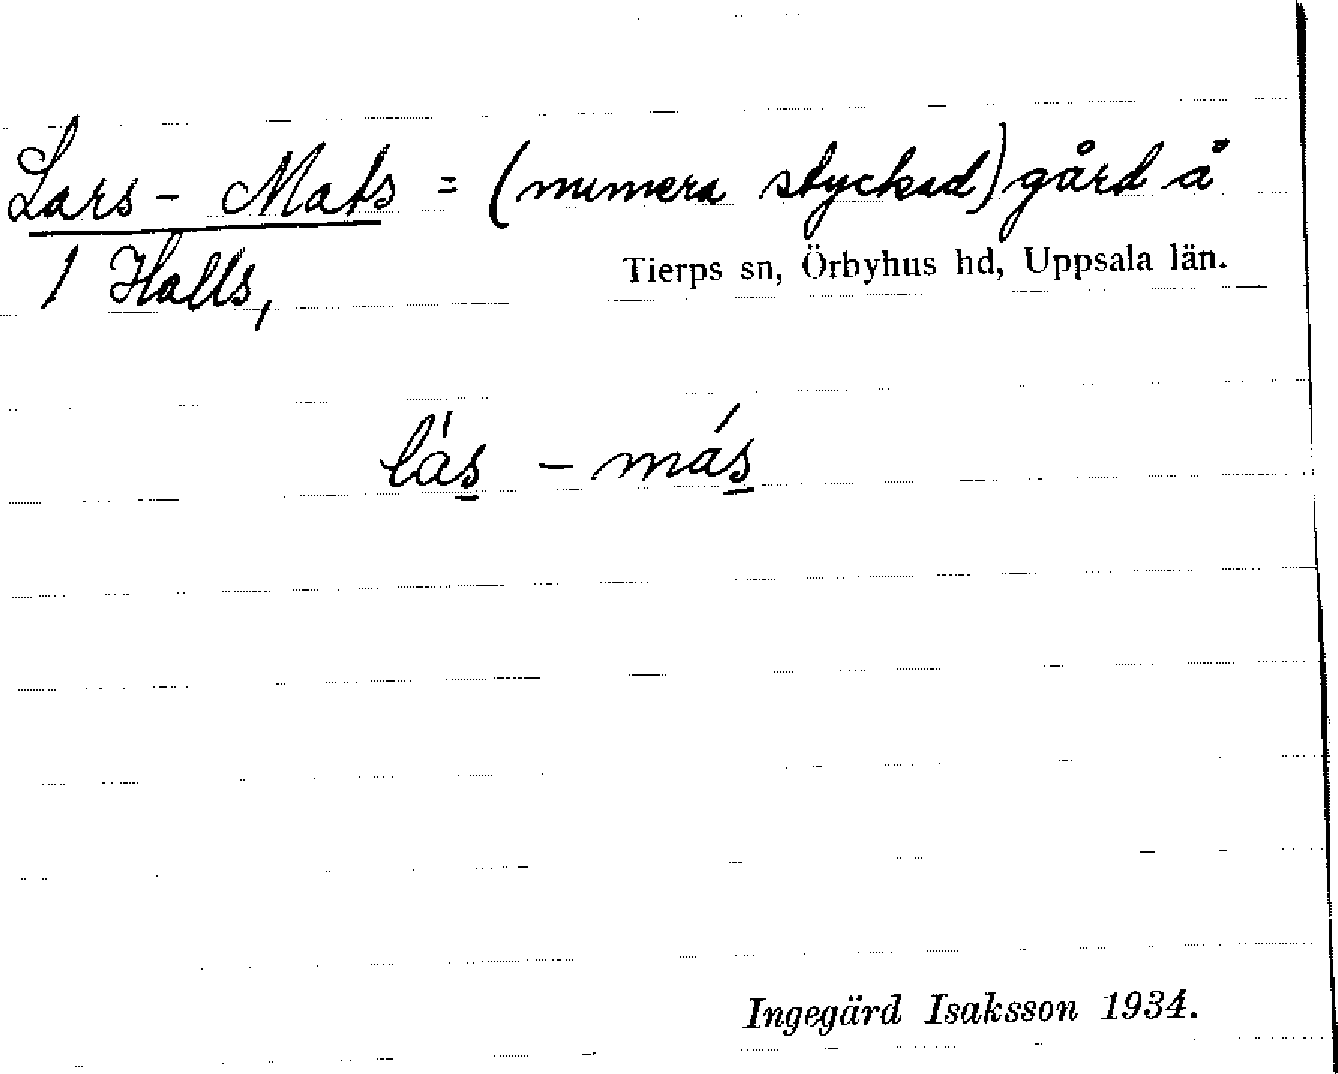 Lars - Mats = (numera styckad) gård å
1 Halls,
Tierps sn, Örbyhus hd, Uppsala län.
lás - más
Ingegärd Isaksson 1934.